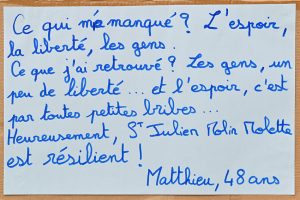 Ce qui m'a manqué ? L'espoir,
la liberté, les gens.
Ce que j'ai retrouvé ? Les gens, un
peu de liberté... et l'espoir, c'est
par toutes petites bribes...
Heureusement, St Julien Molin Molette
est résilient !
Matthieu, 48 ans